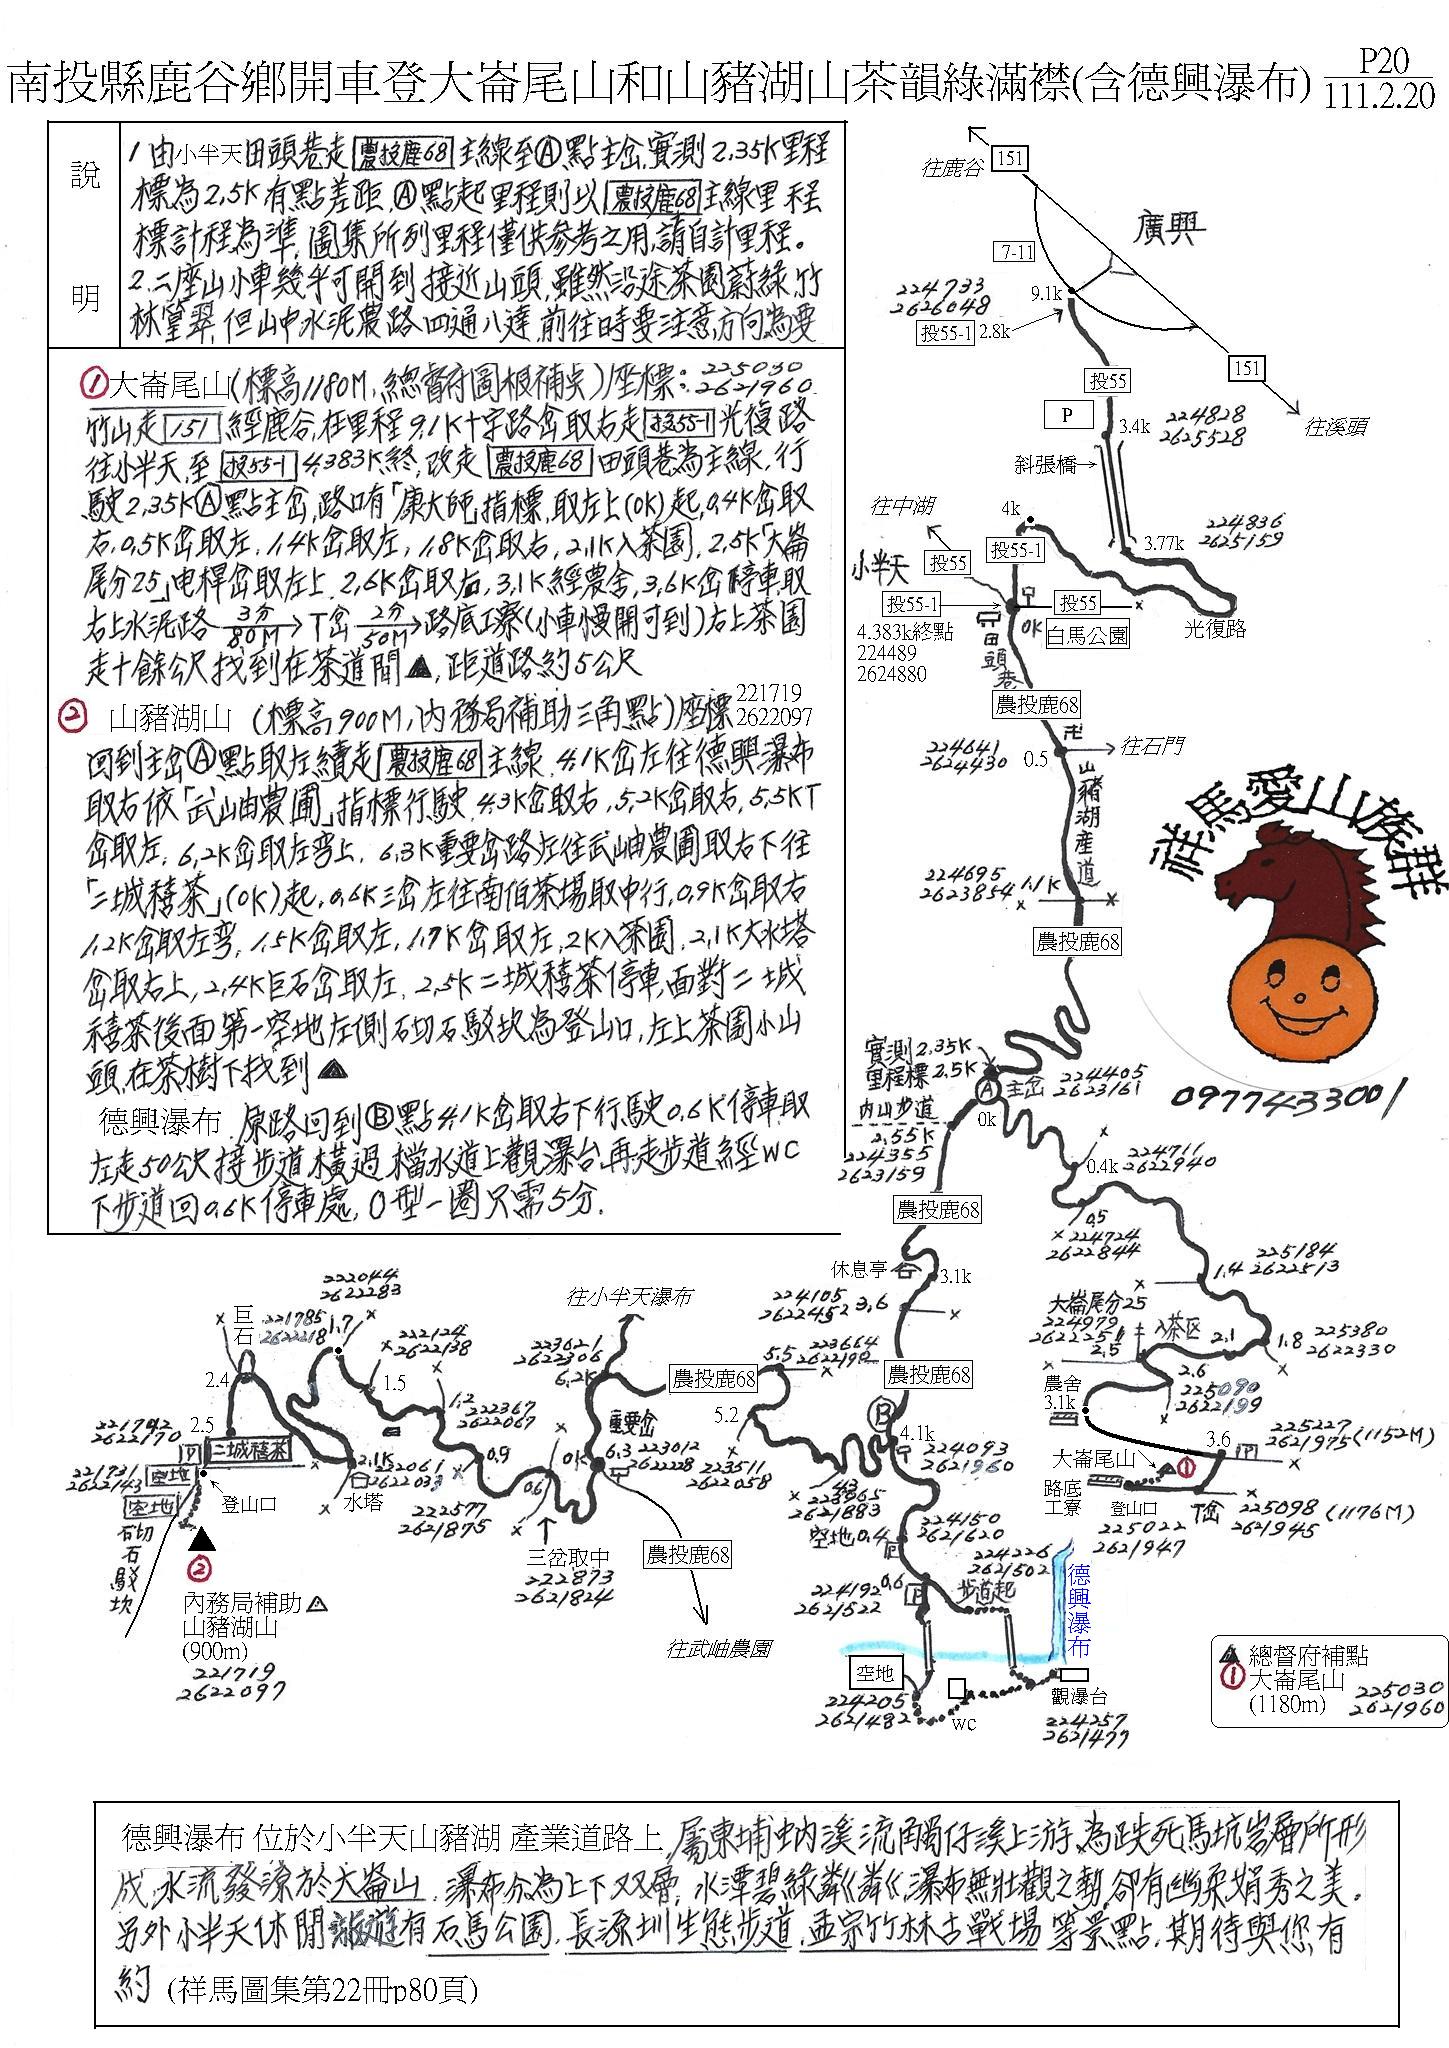 南投縣鹿谷鄉開車登大崙尾山和山豬湖山茶韻綠滿襟(含德興瀑布)
P20
111.2.20
說明
1由小半天田頭巷走農投鹿68主線至A點主岔,實測2.35K里程
標為2.5K有點差距,A點起里程則以農投鹿68主線里程
標計程為準,圖集所列里程僅供參考之用,請自計里程。
2.二座山小車幾乎可開到接近山頭,雖然沿途茶園蔚綠竹
林篁翠,但山中水泥農路四通八達,前往時要注意方向為要
①大崙尾山(標高1180M,總督府圖根補點)座標:225030
2621960
竹山走151經鹿谷,在里程9.1K十字路岔取右走投55-1光復路
往小半天,至投55-1 4.383K終,改走農投鹿68田頭巷為主線,行
駛2.35KA點主岔,路口有「康大師」指標,取左上(0K)起,0.4K岔取
右,0.5K岔取左,1.4K岔取左,1.8K岔取右,2.1K入茶園,2.5K「大崙
尾分25」电桿岔取左上,2.6K岔取右,3.1K經農舍,3.6K岔停車,取
右上水泥路 3分 80M T岔 2分 50M 路底工寮(小車慢開可到)右上茶園
走十餘公尺找到在茶道間▲,距道路約5公尺
② 山豬湖山 (標高900M,內務局補助三角點)座標 221719
2622097
回到主岔A點取左續走農投鹿68主線,4.1K岔左往德興瀑布
取右依「武岫農圃」指標行駛,4.3K岔取右,5.2K岔取右,5.5KT
岔取左,6.2K岔取左弯上,6.3K重要岔路左往武岫農圃取右下往
「二城禧茶」(0K)起,0.6K三岔左往南伯茶場取中行,0.9K岔取右
1.2K岔取左弯,1.5K岔取左,1.7K岔取左,2K入茶園,2.1K大水塔
岔取右上,2.4K巨石岔取左,2.5K二城禧茶停車,面對二城
禧茶後面第一空地左側石切石駁坎為登山口,左上茶園小山
頭,在茶樹下找到▲
德興瀑布 原路回到B點4.1K岔取右下行駛0.6K停車取
左走50公尺接步道橫過檔水道上觀瀑台,再走步道經WC
下步道回0.6K停車處,O型一圈只需5分.
往鹿谷
151
廣興
7-11
224733
2626048
9.1k
投55-1 2.8k
投55
151
往溪頭
P
3.4k
224828
2625528
斜張橋
往中湖
4k
224836
2625159
3.77k
投55-1
小半天
投55
投55-1
4.383k終點
224489
2624880
0K
投55
白馬公園
光復路
田頭巷
農投鹿68
卍
往石門
224641
2624430
0.5
山豬湖產道
224695
2623854
1.1K
農投鹿68
祥馬愛山族群
0977433001
實測2.35K
里程標2.5K
A
主岔
224405
2623161
0k
內山步道
2.55K
224355
2623159
農投鹿68
0.4k
224711
2622940
0.5
224724
2622844
休息亭
3.1k
1.4
225184
2622513
224105
2622452
3.6
大崙尾分25
224979
2622251
2.5
入茶区
2.1
1.8
225380
2622330
2.6
225090
2622199
農舍
3.1k
225227
2621975(1152M)
3.6
P
大崙尾山
①
路底
工寮
登山口
T岔
225098 (1176M)
2621945
225022
2621947
222044
2622283
巨石
221785
262218
1.7
222124
2622138
往小半天瀑布
223621
2622306
6.2K
223664
5.5
農投鹿68
農投鹿68
2.4
1.5
1.2
222367
2622067
5.2
B
4.1k
224093
2621960
221702
2622170
2.5
P
二城禧茶
2.1K
222061
2622033
水塔
0.9
重要岔
0K
6.3
223012
2622228
223511
2622058
4.3
223865
2621883
221731
2622143
空地
空地
登山口
石切石駁坎
222577
2621875
0.6
三岔取中
222873
2621824
農投鹿68
往武岫農園
空地
0.4
P
224150
2621620
224226
2621502
224192
2621522
0.6
P
步道起
德興瀑布
②
內務局補助
山豬湖山
(900m)
221719
2622097
空地
224205
2621482
WC
觀瀑台
224257
2621477
▲總督府補點
①大崙尾山
(1180m)
225030
2621960
德興瀑布 位於小半天山豬湖 產業道路上,屬東埔蚋溪流觸仔溪上游,為跌死馬坑岩層所形
成,水流發源於大崙山,瀑布分為上下双層,水潭碧綠粼粼,瀑布無壯觀之勢,卻有幽柔娟秀之美.
另外小半天休閒旅遊有石馬公園,長源圳生態步道,孟宗竹林古戰場等景點,期待與您有
約 (祥馬圖集第22冊p80頁)